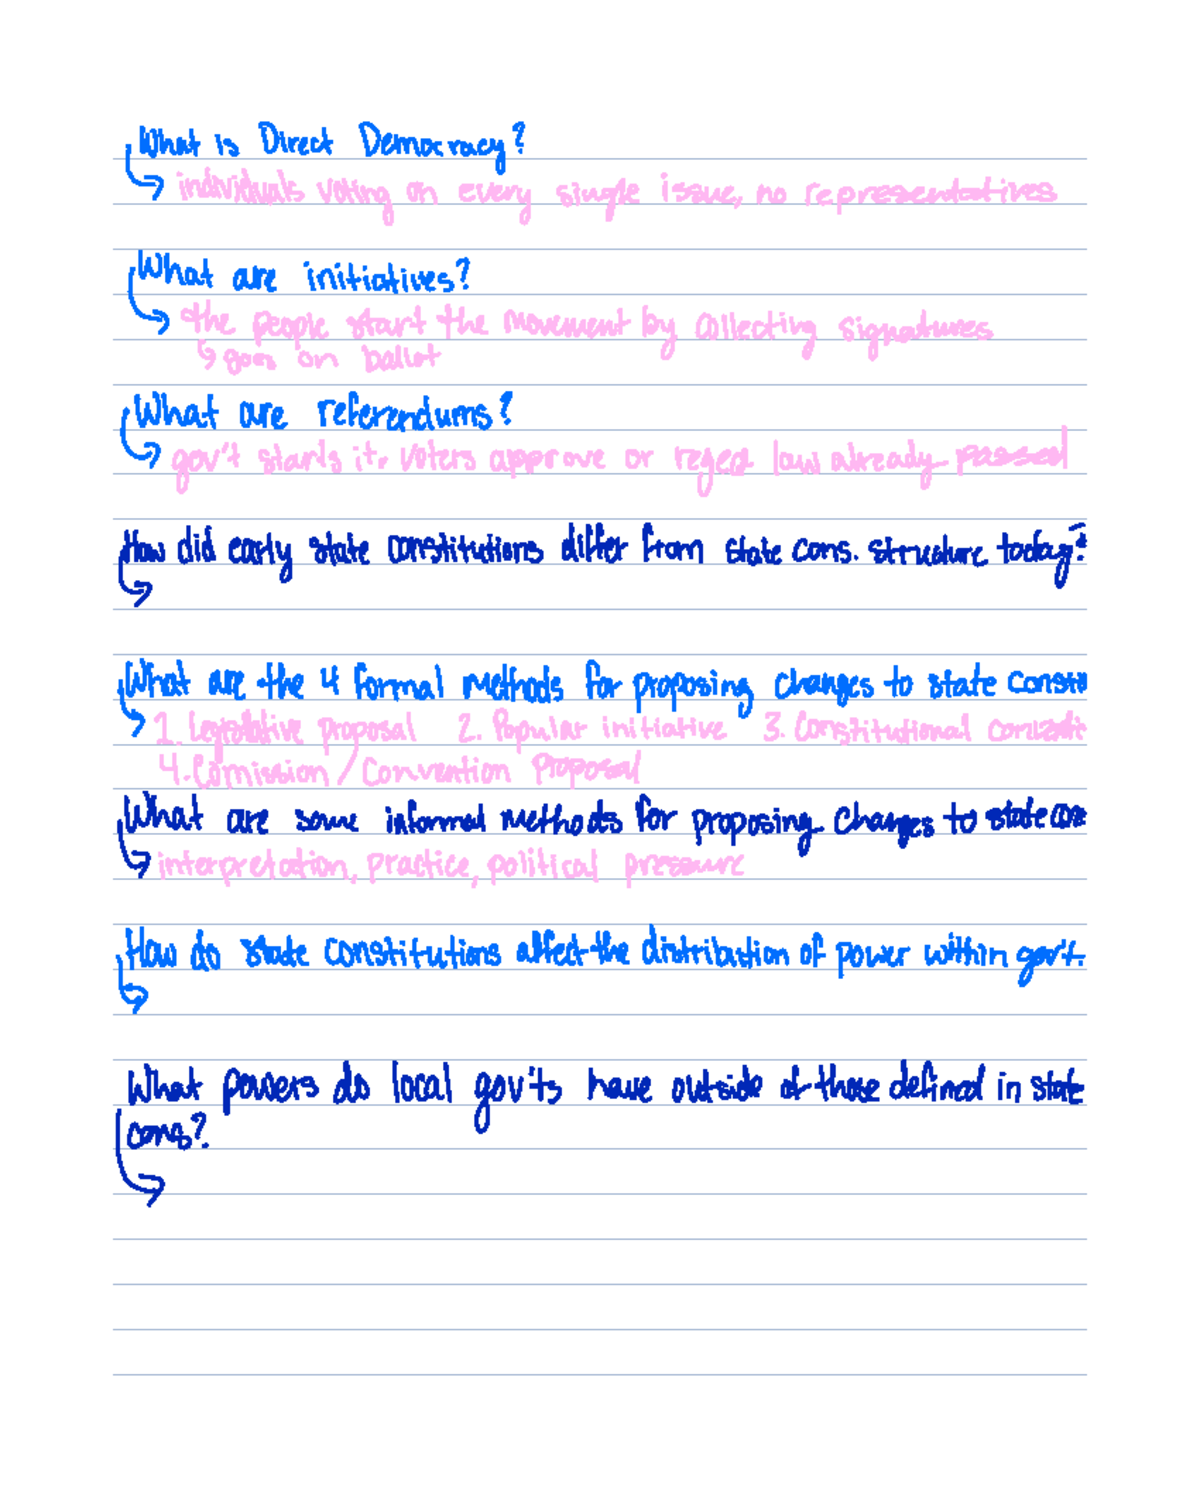 What is Direct Democracy?
individuals voting on every single issue, no representatives
What are initiatives?
the people start the movement by collecting signatures
goes on ballot
What are referendums?
gov't starts it, voters approve or reject law already passed
How did early state constitutions differ from state cons. structure today?
What are the 4 formal methods for proposing changes to state
1. Legislative proposal 2. Popular initiative 3. Constitutional
4. Comission / Convention Proposal
What are some informal methods for proposing changes to state
interpretation, practice, political pressure
How do state constitutions affect the distribution of power within gov't.
What powers do local gov'ts have outside of those defined in state
cons?